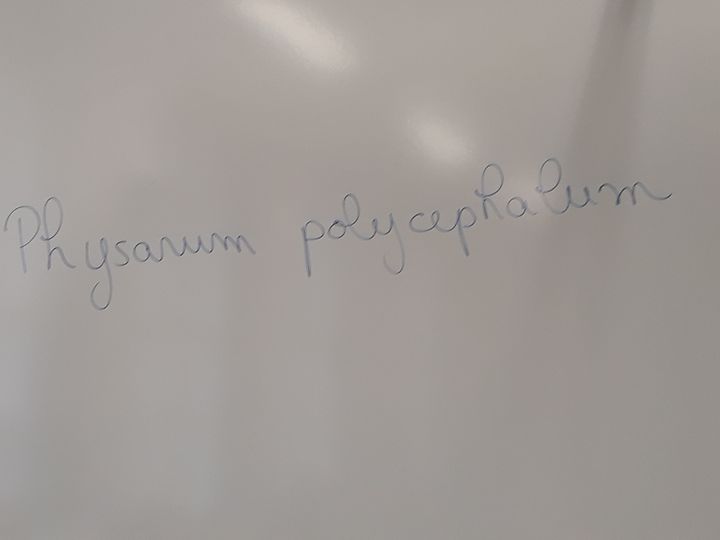 Physarum polycephalum